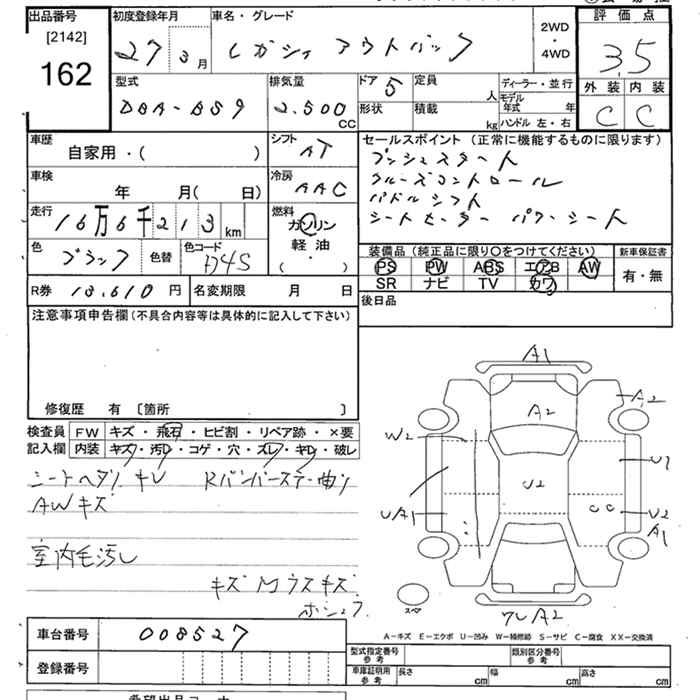 出品番号 初度登録年月 車名・グレード 2WD・4WD 評価点
[2142]
162 27 3月 レガシィ アウトバック 3.5
型式 排気量 ドア 5 定員 人 ディーラー・並行 外装 内装
DBA-BS9 2.500 CC 形状 積載 kg モデル年式 年 C C
ハンドル 左・右
車歴 シフト セールスポイント (正常に機能するものに限ります)
自家用・( ) AT プッシュスタート
車検 冷房 クルーズコントロール
年 月( 日) AAC パドルシフト
走行 16万6千213km 燃料 シートヒーター パワーシート
ガソリン
色 ブラック 色替 色コード D4S 軽油・( )
装備品 (純正品に限り○をつけてください) 新車保証書
PS PW ABS エアB AW 有・無
SR ナビ TV カワ
R券 13.610円 名変期限 月 日 後日品
注意事項申告欄 (不具合内容等は具体的に記入して下さい)
修復歴 有 〔箇所 〕
検査員 FW キズ・飛石・ヒビ割・リペア跡・×要
記入欄 内装 キズ・汚レ・コゲ・穴・スレ・キレ・破レ
シートヘタリ キレ Rバンパーステー曲り
AWキズ
室内毛汚レ
キズMラスキズ
A1
A2
A2
W2
U1
U2
UA1
CC
U2
A1
スペア
A2
A-キズ E-エクボ U-凹み W-補修跡 S-サビ C-腐食 XX-交換済
車台番号 008527
型式指定番号 参考 類別区分番号 参考
登録番号 車庫証明用 参考 長さ cm 幅 cm 高さ cm
希望出品コーナー